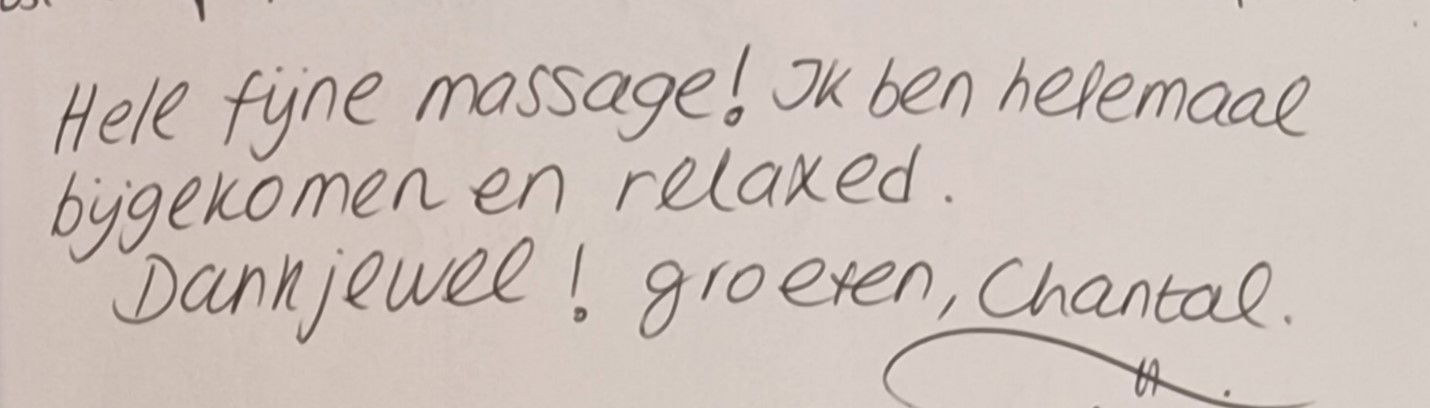 Hele fijne massage! Ik ben helemaal
bijgekomen en relaxed.
Dankjewel! groeten, Chantal.